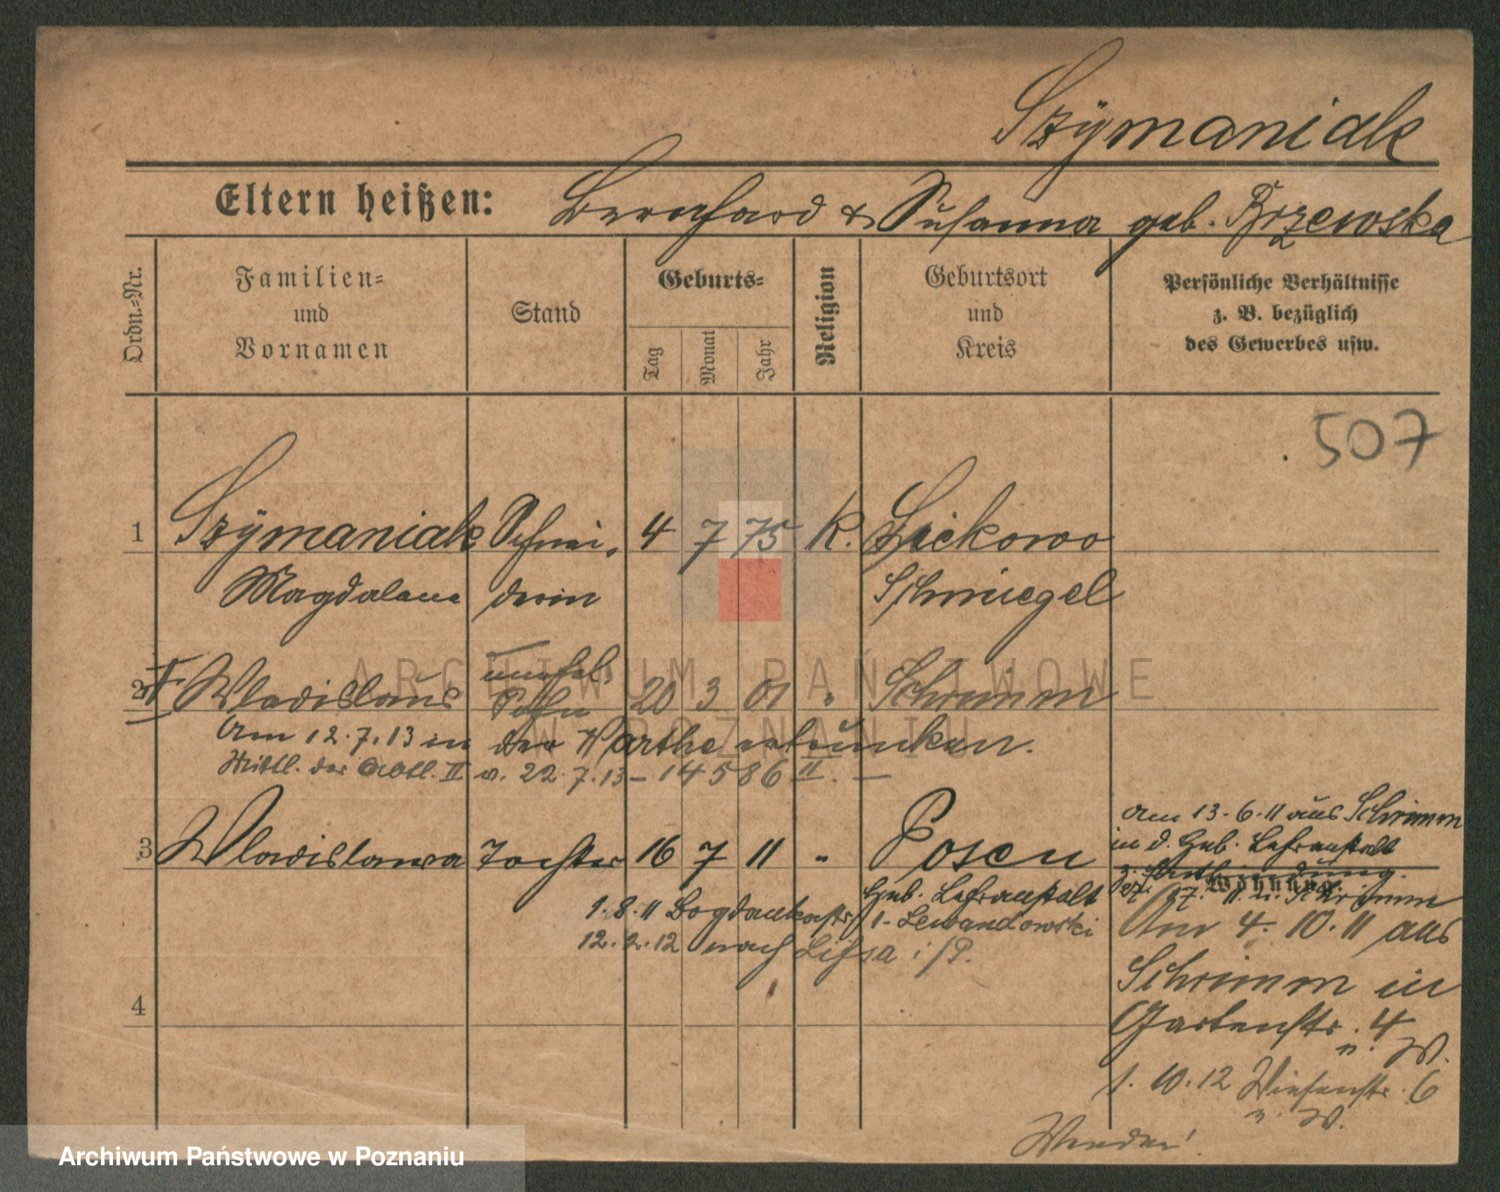 Szÿmaniak
Eltern heißen: Bernhard & Susanna geb. Brzewska
Ordn.=Nr.
Familien=
und
Vornamen
Stand
Geburts=
Tag
Monat
Jahr
Religion
Geburtsort
und
Kreis
Persönliche Verhältnisse
z. B. bezüglich
des Gewerbes usw.
507
1 Szÿmaniak Schnei- 4 7 75 K. Zickowo
Magdalene derin Schmiegel
2 Wladislaus unehel. Sohn 20 3 01 " Schrimm
Am 12.7.13 in der Warthe ertrunken.
Mittl. der Abtl. II v. 22.7.13 – 14586 II. –
3 Wladislawa Tochter 16 7 11 " Posen
Am 13.6.11 aus Schrimm
in d. Heb. Lehranstalt
z. Entbindung.
Wohnung.
27. 7. 11 n. Schrimm
Heb. Lehranstalt
1.8.11 Bogdankastr 1 - Lewandowski
12.2.12 nach Lissa i/P.
Am 4.10.11 aus
Schrimm in
Gartenstr. 4
n. W.
1.10.12 Wiesenstr. 6
n. W.
4
Wenden!
ARCHIWUM PAŃSTWOWE
W POZNANIU
Archiwum Państwowe w Poznaniu